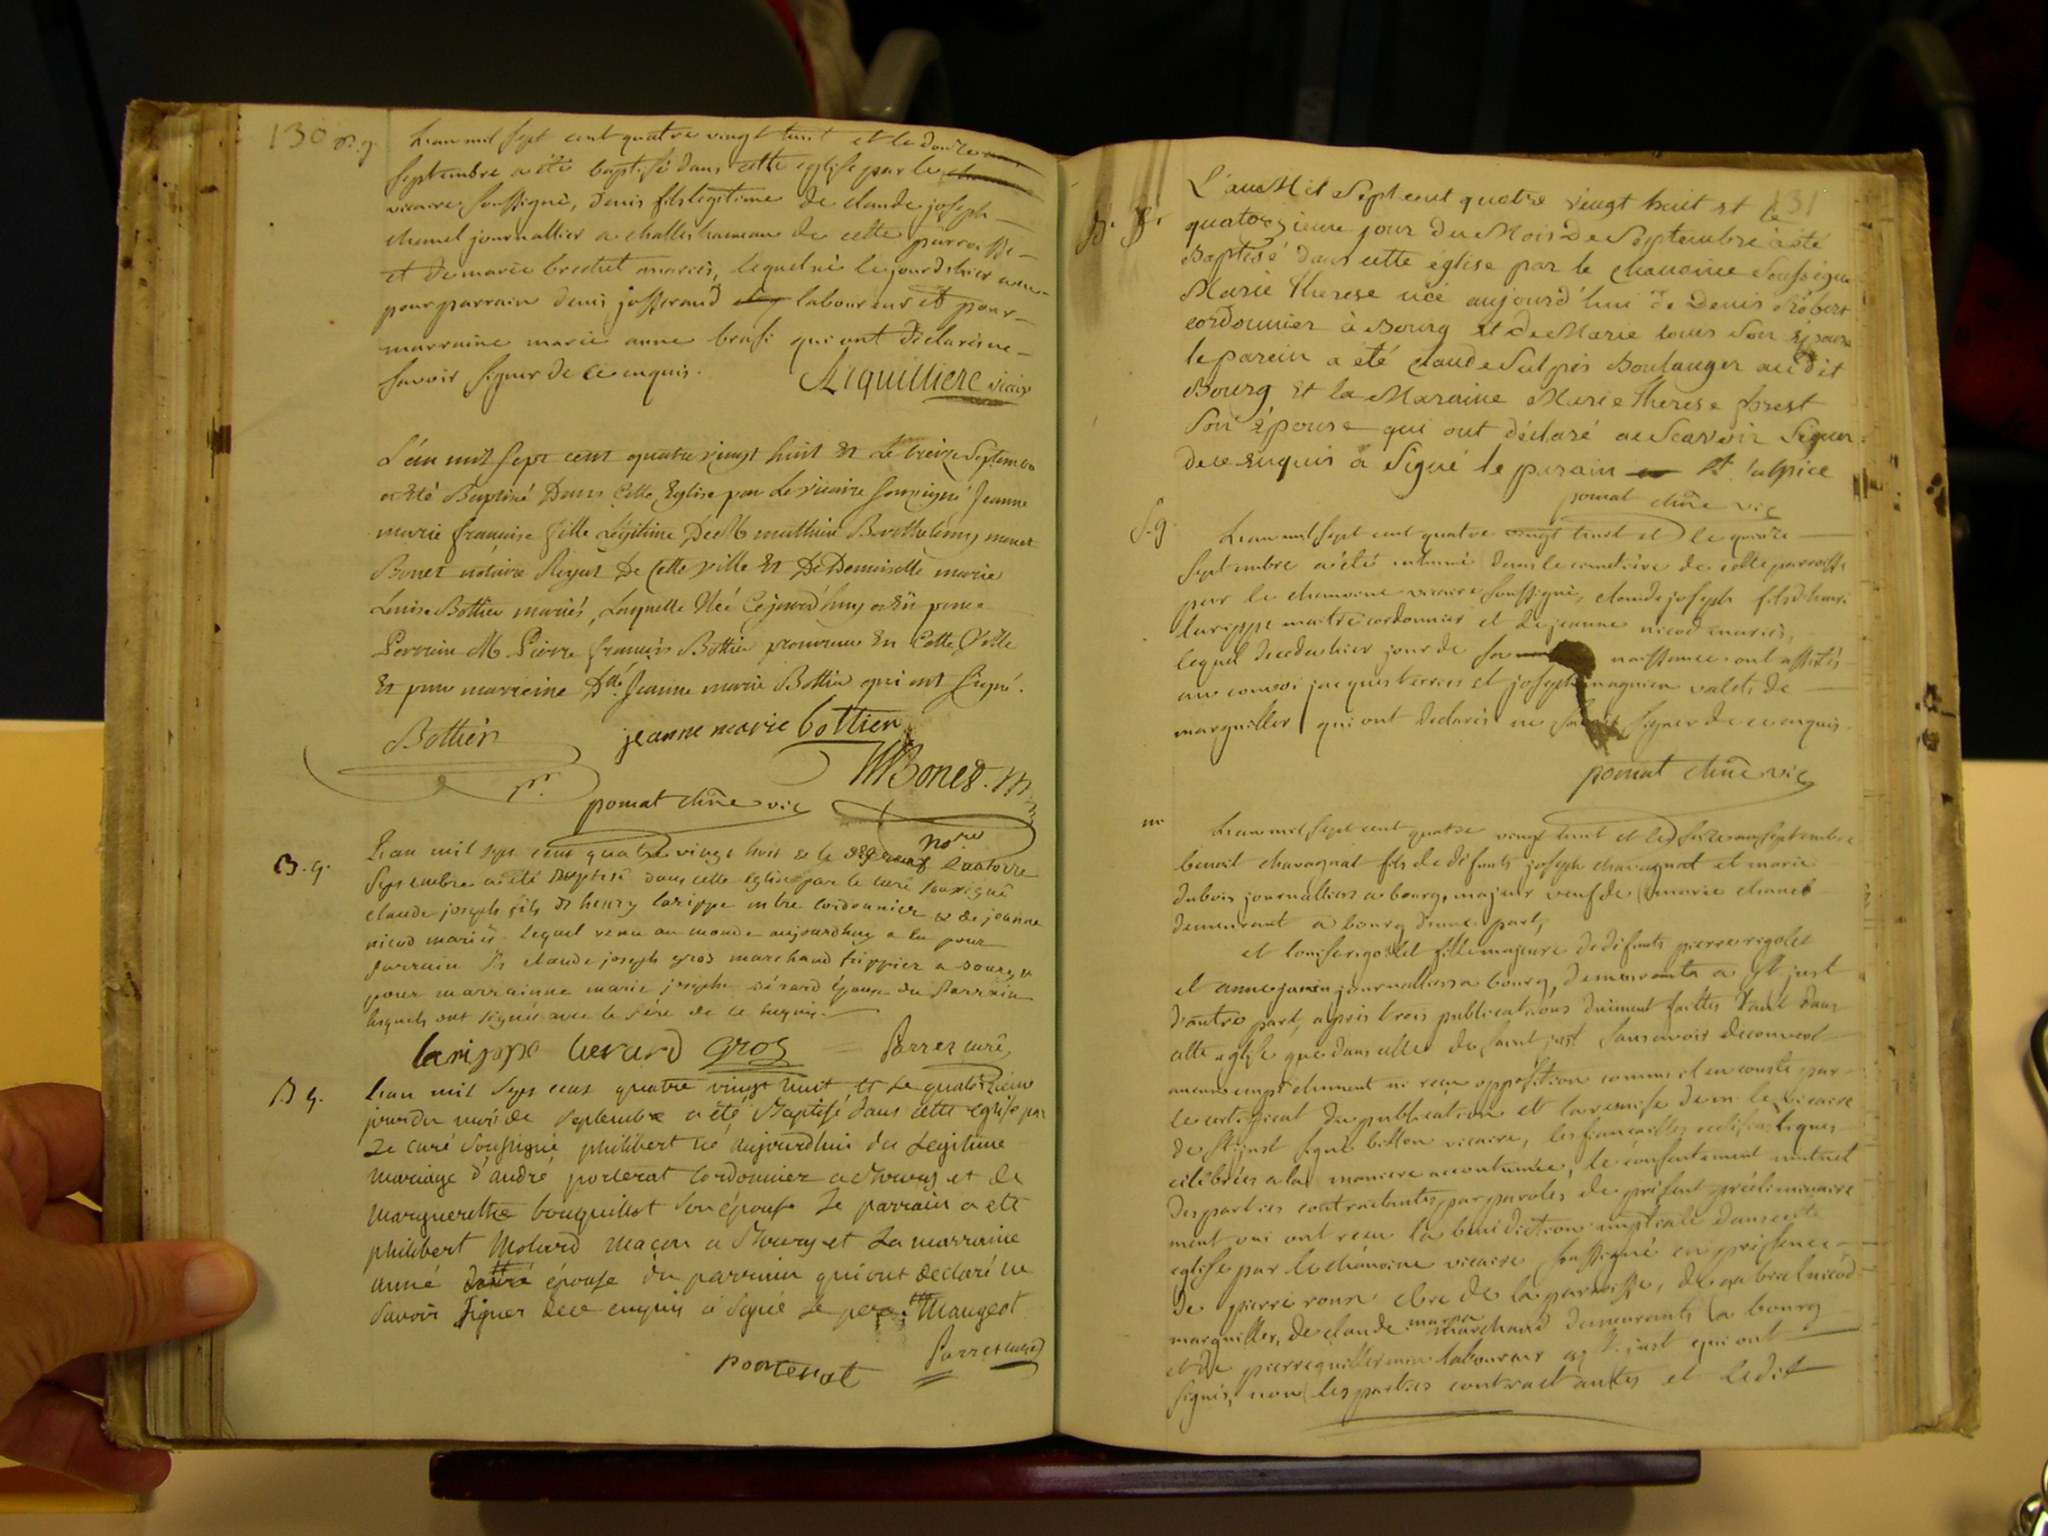 130 B. g.
L'an mil sept cent quatre vingt huit et le douze
septembre a été baptisé dans cette eglise par le
vicaire soussigné, denis fils legitime de claude joseph
chanel journallier a challes hameau de cette parroisse
et de marie brochet mariés, lequel né le jour d'hier a eu
pour parrain denis josserand laboureur et pour
marraine marie anne qui ont déclaré ne
savoir signer de ce enquis.
Arquilliere vicaire
L'an mil sept cent quatre vingt huit et le treize septembre
a été Baptisé Dans Cette Eglise par Le vicaire soussigné Jeanne
marie françoise fille Légitime De M mathieu Barthelemy
Bonet notaire Royal De Cette ville et De Demoiselle marie
Louise Bottier mariés, Laquelle Née Cejourd'huy a Eü pour
Parrain M. Pierre françois Bottier procureur En Cette Ville
Et pour marraine Dlle Jeanne marie Bottier qui ont signé.
Bottier jeanne marie bottier
MBonet.
pomat chne vic nore
B. g.
L'an mil sept cent quatre vingt huit & le quatorze
Septembre a été Baptisé dans cette eglise par le curé soussigné
claude joseph fils d' henry larippe mtre cordonnier & de jeanne
nicod mariés lequel venu au monde aujourdhuy a eu pour
parrain claude joseph gros marchand frippier a Bourg &
pour marrainne marie josephe Gérard épouse du Parrain
lesquels ont signé avec le père de ce enquis.
larippe Gerard gros
B g.
L'an mil sept cent quatre vingt huit et Le quatorzieme
jour du mois de septembre a été Baptisé dans cette eglise par
Le curé soussigné philibert né aujourdhui du Legitime
mariage d'andré porterat Cordonnier a Bourg et de
Marguerethe bouquillot son épouse Le parrain a été
philibert Molard Maçon a Bourg et La marraine
anne épouse du parrain qui ont declaré ne
savoir signer de ce enquis a signé Le pere. Mangeot
porterat
131
B. g.
L'an Mil Sept cent quatre vingt huit et le
quatorzieme jour du Mois De Septembre à été
Baptisé dans cette eglise par le chanoine soussigné
Marie Therese née aujourd'hui de Denis Robert
cordonnier à Bourg et de Marie louis son Epouse
le parein a été claude Sulpis Boulanger au dit
Bourg et la Maraine Marie Therese forest
son Epouse qui ont déclaré ne Scavoir Signer
de ce enquis à Signé le parain
pomat chne vic
S. g
L'an mil sept cent quatre vingt huit et le quinze
septembre a été inhumé dans le cimetière de cette parroisse
par le chanoine vicaire soussigné, claude joseph fils d'henri
larippe maitre cordonnier et de jeanne nicod mariés,
lequel décédé hier jour de sa naissance ont assistés
au convoi jacques et joseph magnien valets de
marguiller qui ont declarés ne savoir signer de ce enquis.
pomat chne vic
m
L'an mil sept cent quatre vingt huit et le seize septembre
benoit chavagnat fils de défunts joseph chavagnat et marie
dubois journalliers a bourg, majeur veuf de marie chanel
demeurant a bourg d'une part,
et louise rigollet fille majeure de défunts pierre rigolet
et anne janin journalliers a bourg, demeurante a st just
d'autre part, après trois publications duement faittes tant dans
cette eglise que dans celle de saint just sans avoir découvert
aucun empechement ni reçu opposition comme il en conste par
le certificat de publication et la remise de m. le vicaire
de st just signé billon vicaire, les fiançailles ecclésiastiques
célébrées a la maniere accoutumée, le consentement mutuel
des parties contractantes par paroles de présent préliminairement
oui ont reçu la bénédiction nuptiale dans cette
eglise par le chanoine vicaire soussigné en présence
de pierre clerc de la parroisse, de gabriel nicod
marguiller, de claude marchand demeurants a bourg
et de pierre guillermin laboureur a st just qui ont
signés, non les parties contractantes et ledit